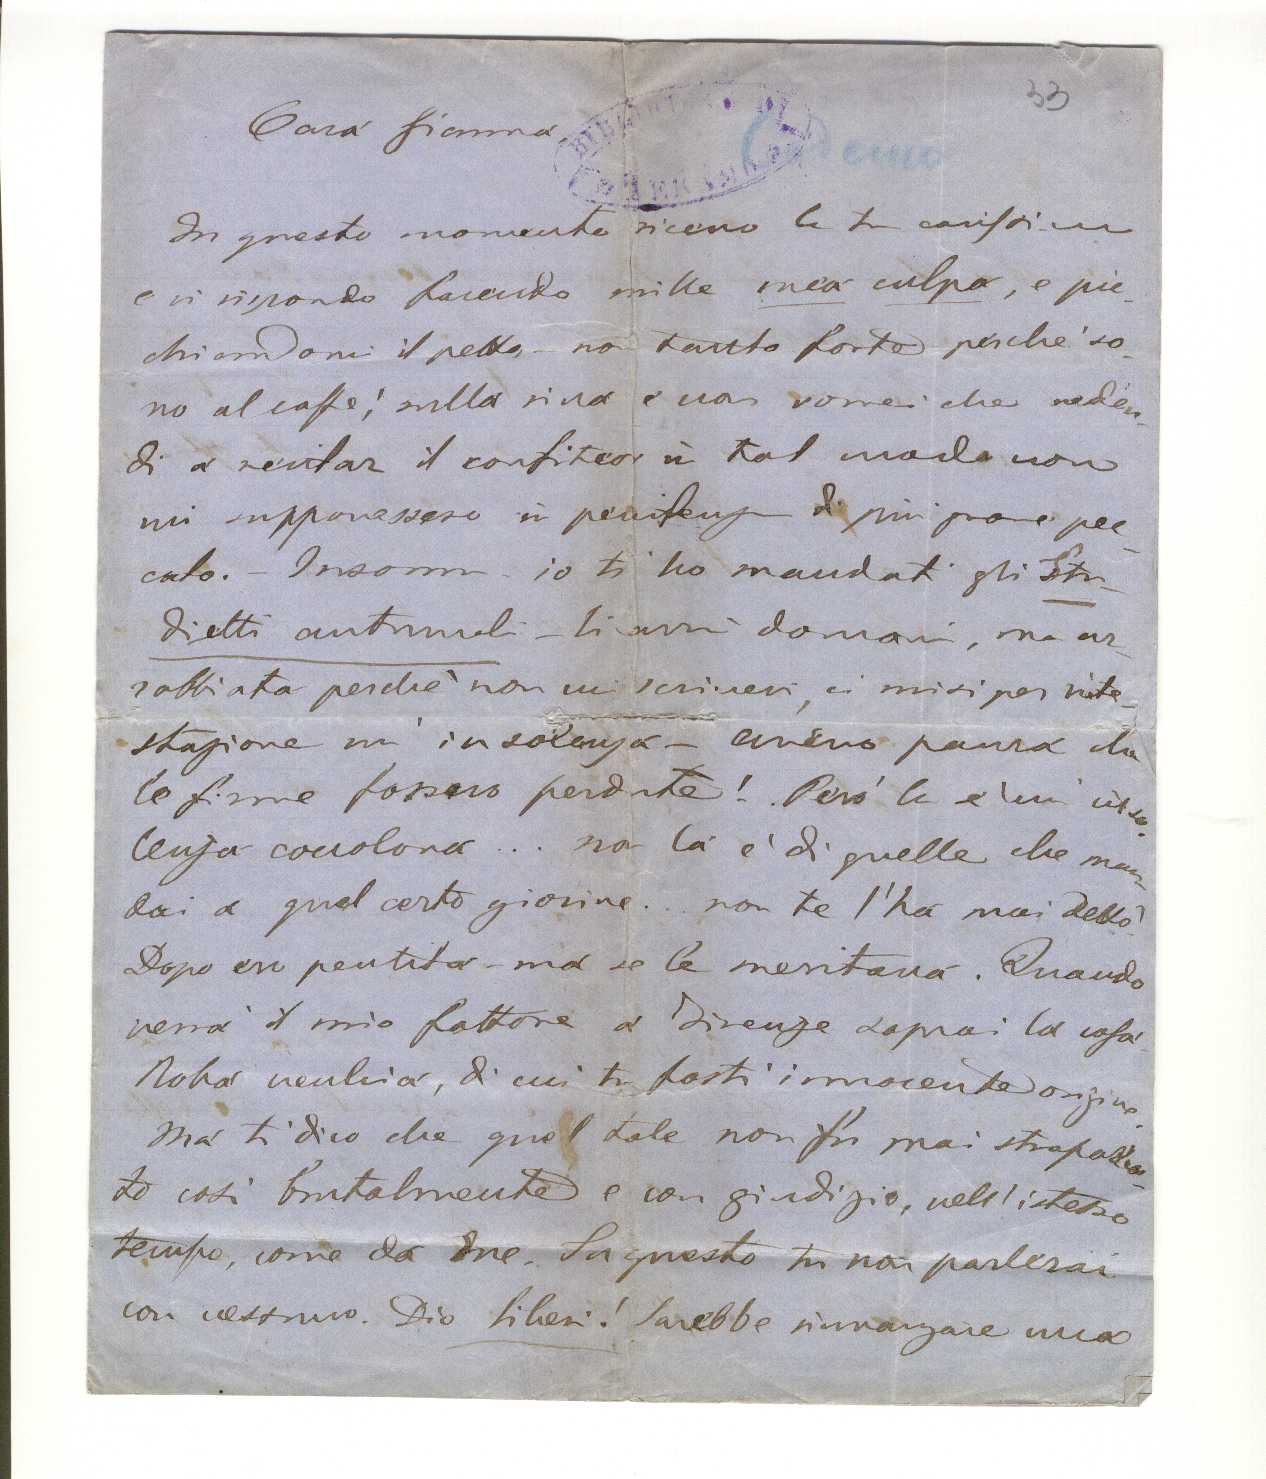 33
Cara Gianna
BIBLIOTECA DI TERAMO
In questo momento ricevo la tua carissima
e vi rispondo facendo mille mea culpa, e pic-
chiandomi il petto - non tanto forte perchè so-
no al caffè! sulla riva e non vorrei che vedèn-
di a recitar il confiteor in tal modo non
mi supponessero in penitenza di più grave pec-
cato. - Insomma - io ti ho mandati gli Stu-
dietti autunnali - li avrai domani, ma ar-
rabbiata perchè non mi scrivevi, ci misi per inte-
stazione un' insolenza - avevo paura che
le firme fossero perdute! Però la è un' inso-
lenza consolona ... non la è di quelle che man-
dai a quel certo giovine .. non te l'ha mai detto?
Dopo ero pentita - ma se le meritava. Quando
verrà il mio fattore a Firenze saprai la cosa.
Roba vecchia, di cui tu fosti innocente origine.
Ma ti dico che quel tale non fu mai strapazza-
to così brutalmente e con giudizio, nell'istesso
tempo, come da me. Su questo tu non parlerai
con nessuno. Dio liberi! Sarebbe rinvangare una